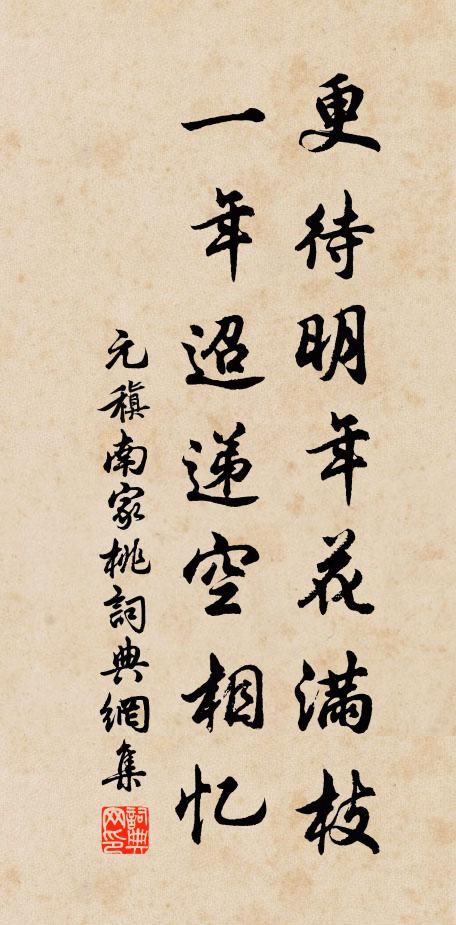 更待明年花满枝
一年迢递空相忆
元稹南家桃詞典網集
詞典网印